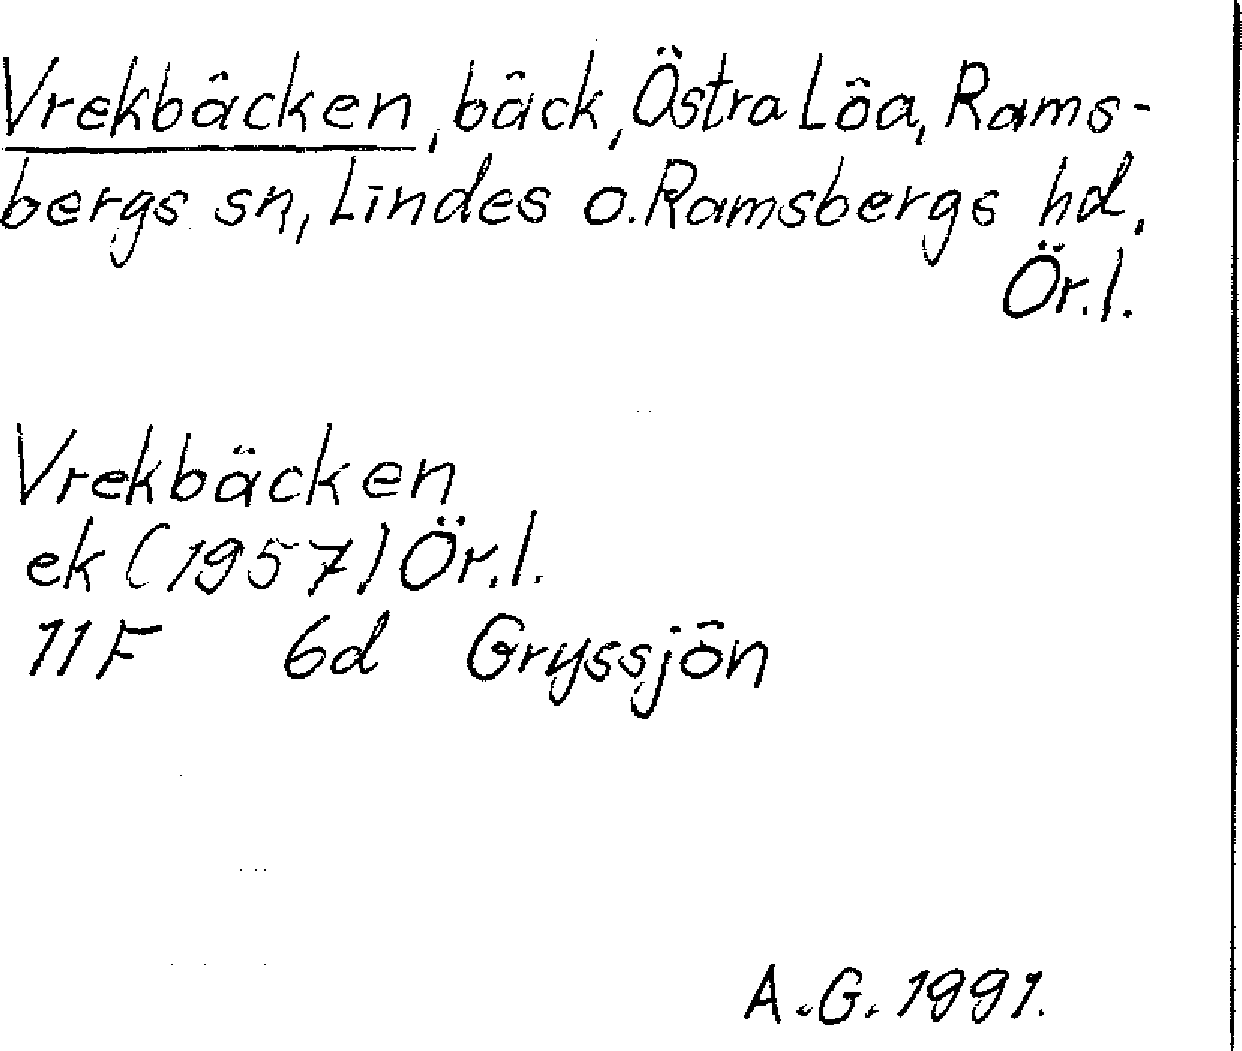 Vrekbäcken, bäck, Östra Löa, Rams-
bergs sn, Lindes o. Ramsbergs hd,
Ör.l.
Vrekbäcken
ek (1957) Ör.l.
11F 6d Gryssjön
A.G. 1991.